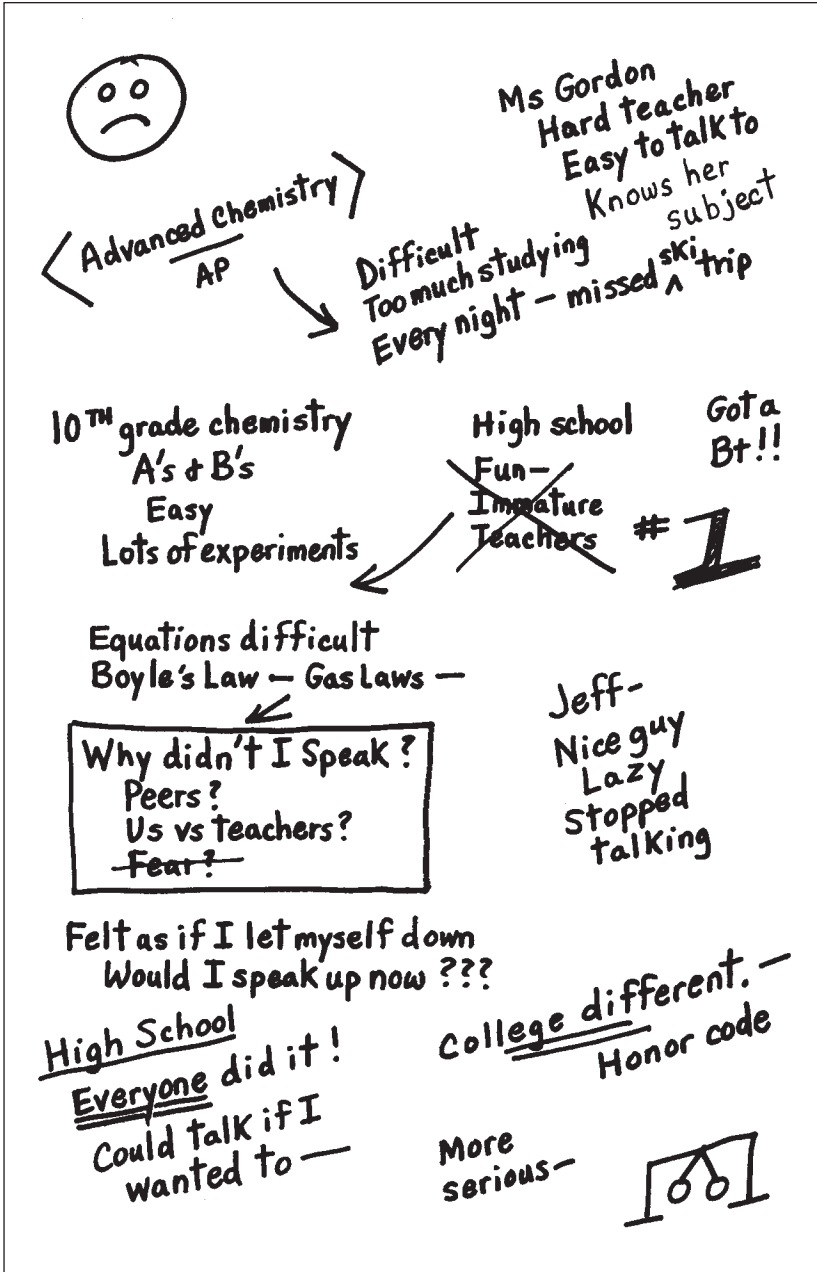 Ms Gordon
Hard teacher
Easy to talk to
Knows her
subject
Advanced Chemistry
AP
Difficult
Too much studying
Every night — missed ^ski trip
10TH grade chemistry
A's & B's
Easy
Lots of experiments
High school
Fun—
Immature
Teachers
#1
Got a
B+!!
Equations difficult
Boyle's Law — Gas Laws —
Why didn't I Speak?
Peers?
Us vs teachers?
Fear?
Jeff—
Nice guy
Lazy
Stopped
talking
Felt as if I let myself down
Would I speak up now ???
High School
Everyone did it!
Could talk if I
wanted to —
College different. —
Honor code
More
serious—